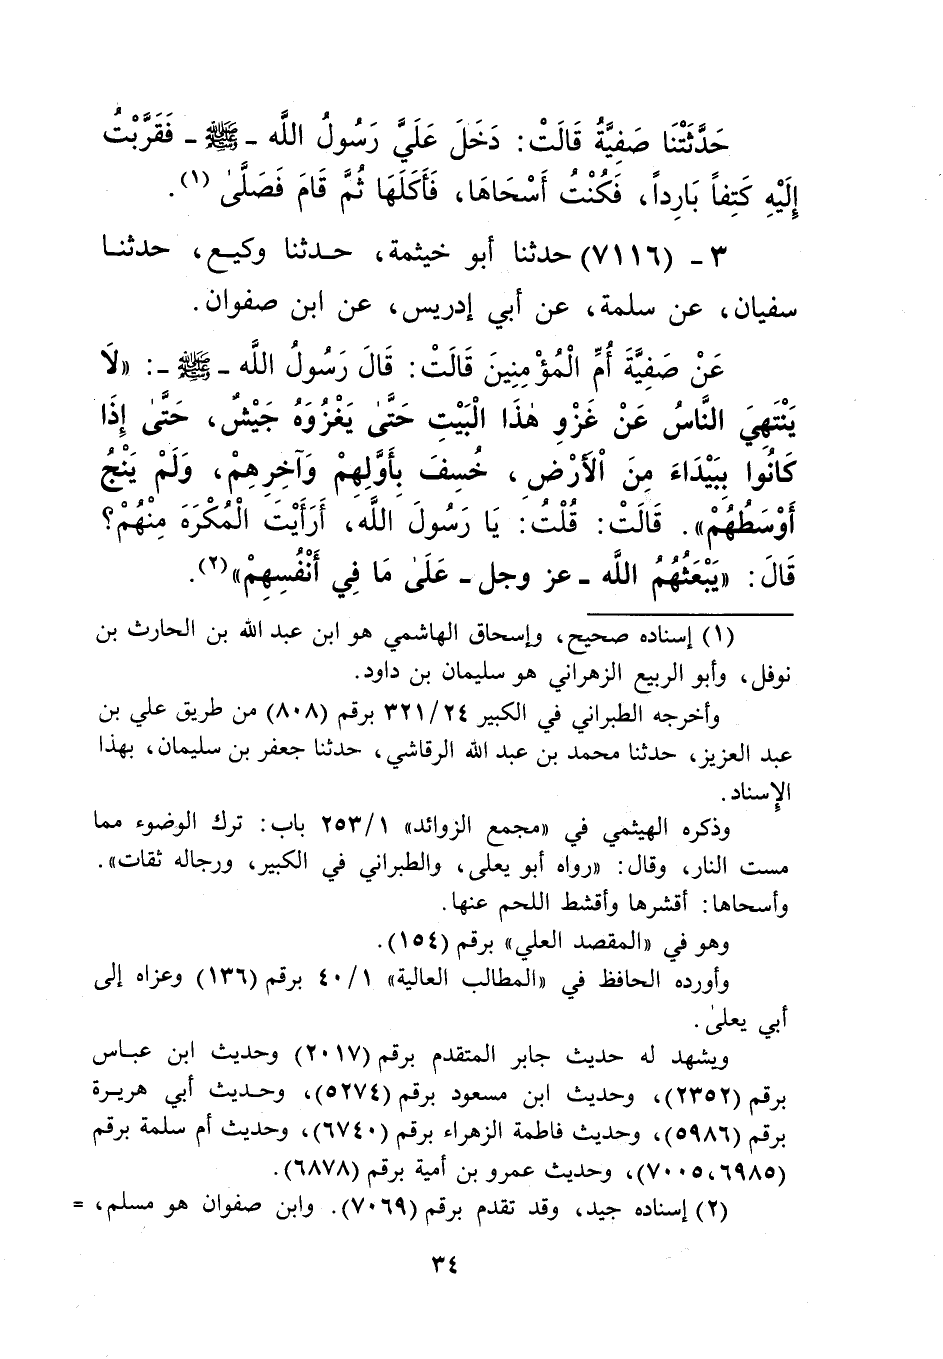 حَدَّثَتْنَا صَفِيَّةُ قَالَتْ: دَخَلَ عَلَيَّ رَسُولُ اللَّه ـ ﷺ ـ فَقَرَّبْتُ
إِلَيْهِ كَتِفاً بَارِداً، فَكُنْتُ أَسْحَاهَا، فَأَكَلَهَا ثُمَّ قَامَ فَصَلَّىٰ (١).
٣ ـ (٧١١٦) حدثنا أبو خيثمة، حدثنا وكيع، حدثنا
سفيان، عن سلمة، عن أبي إدريس، عن ابن صفوان.
عَنْ صَفِيَّةَ أُمِّ الْمُؤْمِنِينَ قَالَتْ: قَالَ رَسُولُ اللَّه ـ ﷺ ـ: «لَا
يَنْتَهِيَ النَّاسُ عَنْ غَزْوِ هٰذَا الْبَيْتِ حَتَّىٰ يَغْزُوَهُ جَيْشٌ، حَتَّىٰ إِذَا
كَانُوا بِبَيْدَاءَ مِنَ الْأَرْضِ، خُسِفَ بِأَوَّلِهِمْ وَآخِرِهِمْ، وَلَمْ يَنْجُ
أَوْسَطُهُمْ». قَالَتْ: قُلْتُ: يَا رَسُولَ اللَّه، أَرَأَيْتَ الْمُكْرَهَ مِنْهُمْ؟
قَالَ: «يَبْعَثُهُمُ اللَّه ـ عز وجل ـ عَلَىٰ مَا فِي أَنْفُسِهِمْ» (٢).
(١) إسناده صحيح، وإسحاق الهاشمي هو ابن عبد الله بن الحارث بن
نوفل، وأبو الربيع الزهراني هو سليمان بن داود.
وأخرجه الطبراني في الكبير ٣٢١/٢٤ برقم (٨٠٨) من طريق علي بن
عبد العزيز، حدثنا محمد بن عبد الله الرقاشي، حدثنا جعفر بن سليمان، بهذا
الإسناد.
وذكره الهيثمي في «مجمع الزوائد» ٢٥٣/١ باب: ترك الوضوء مما
مست النار، وقال: «رواه أبو يعلى، والطبراني في الكبير، ورجاله ثقات».
وأسحاها: أقشرها وأقشط اللحم عنها.
وهو في «المقصد العلي» برقم (١٥٤).
وأورده الحافظ في «المطالب العالية» ٤٠/١ برقم (١٣٦) وعزاه إلى
أبي يعلىٰ.
ويشهد له حديث جابر المتقدم برقم (٢٠١٧) وحديث ابن عباس
برقم (٢٣٥٢)، وحديث ابن مسعود برقم (٥٢٧٤)، وحديث أبي هريرة
برقم (٥٩٨٦)، وحديث فاطمة الزهراء برقم (٦٧٤٠)، وحديث أم سلمة برقم
(٦٩٨٥، ٧٠٠٥)، وحديث عمرو بن أمية برقم (٦٨٧٨).
(٢) إسناده جيد، وقد تقدم برقم (٧٠٦٩). وابن صفوان هو مسلم، =
٣٤